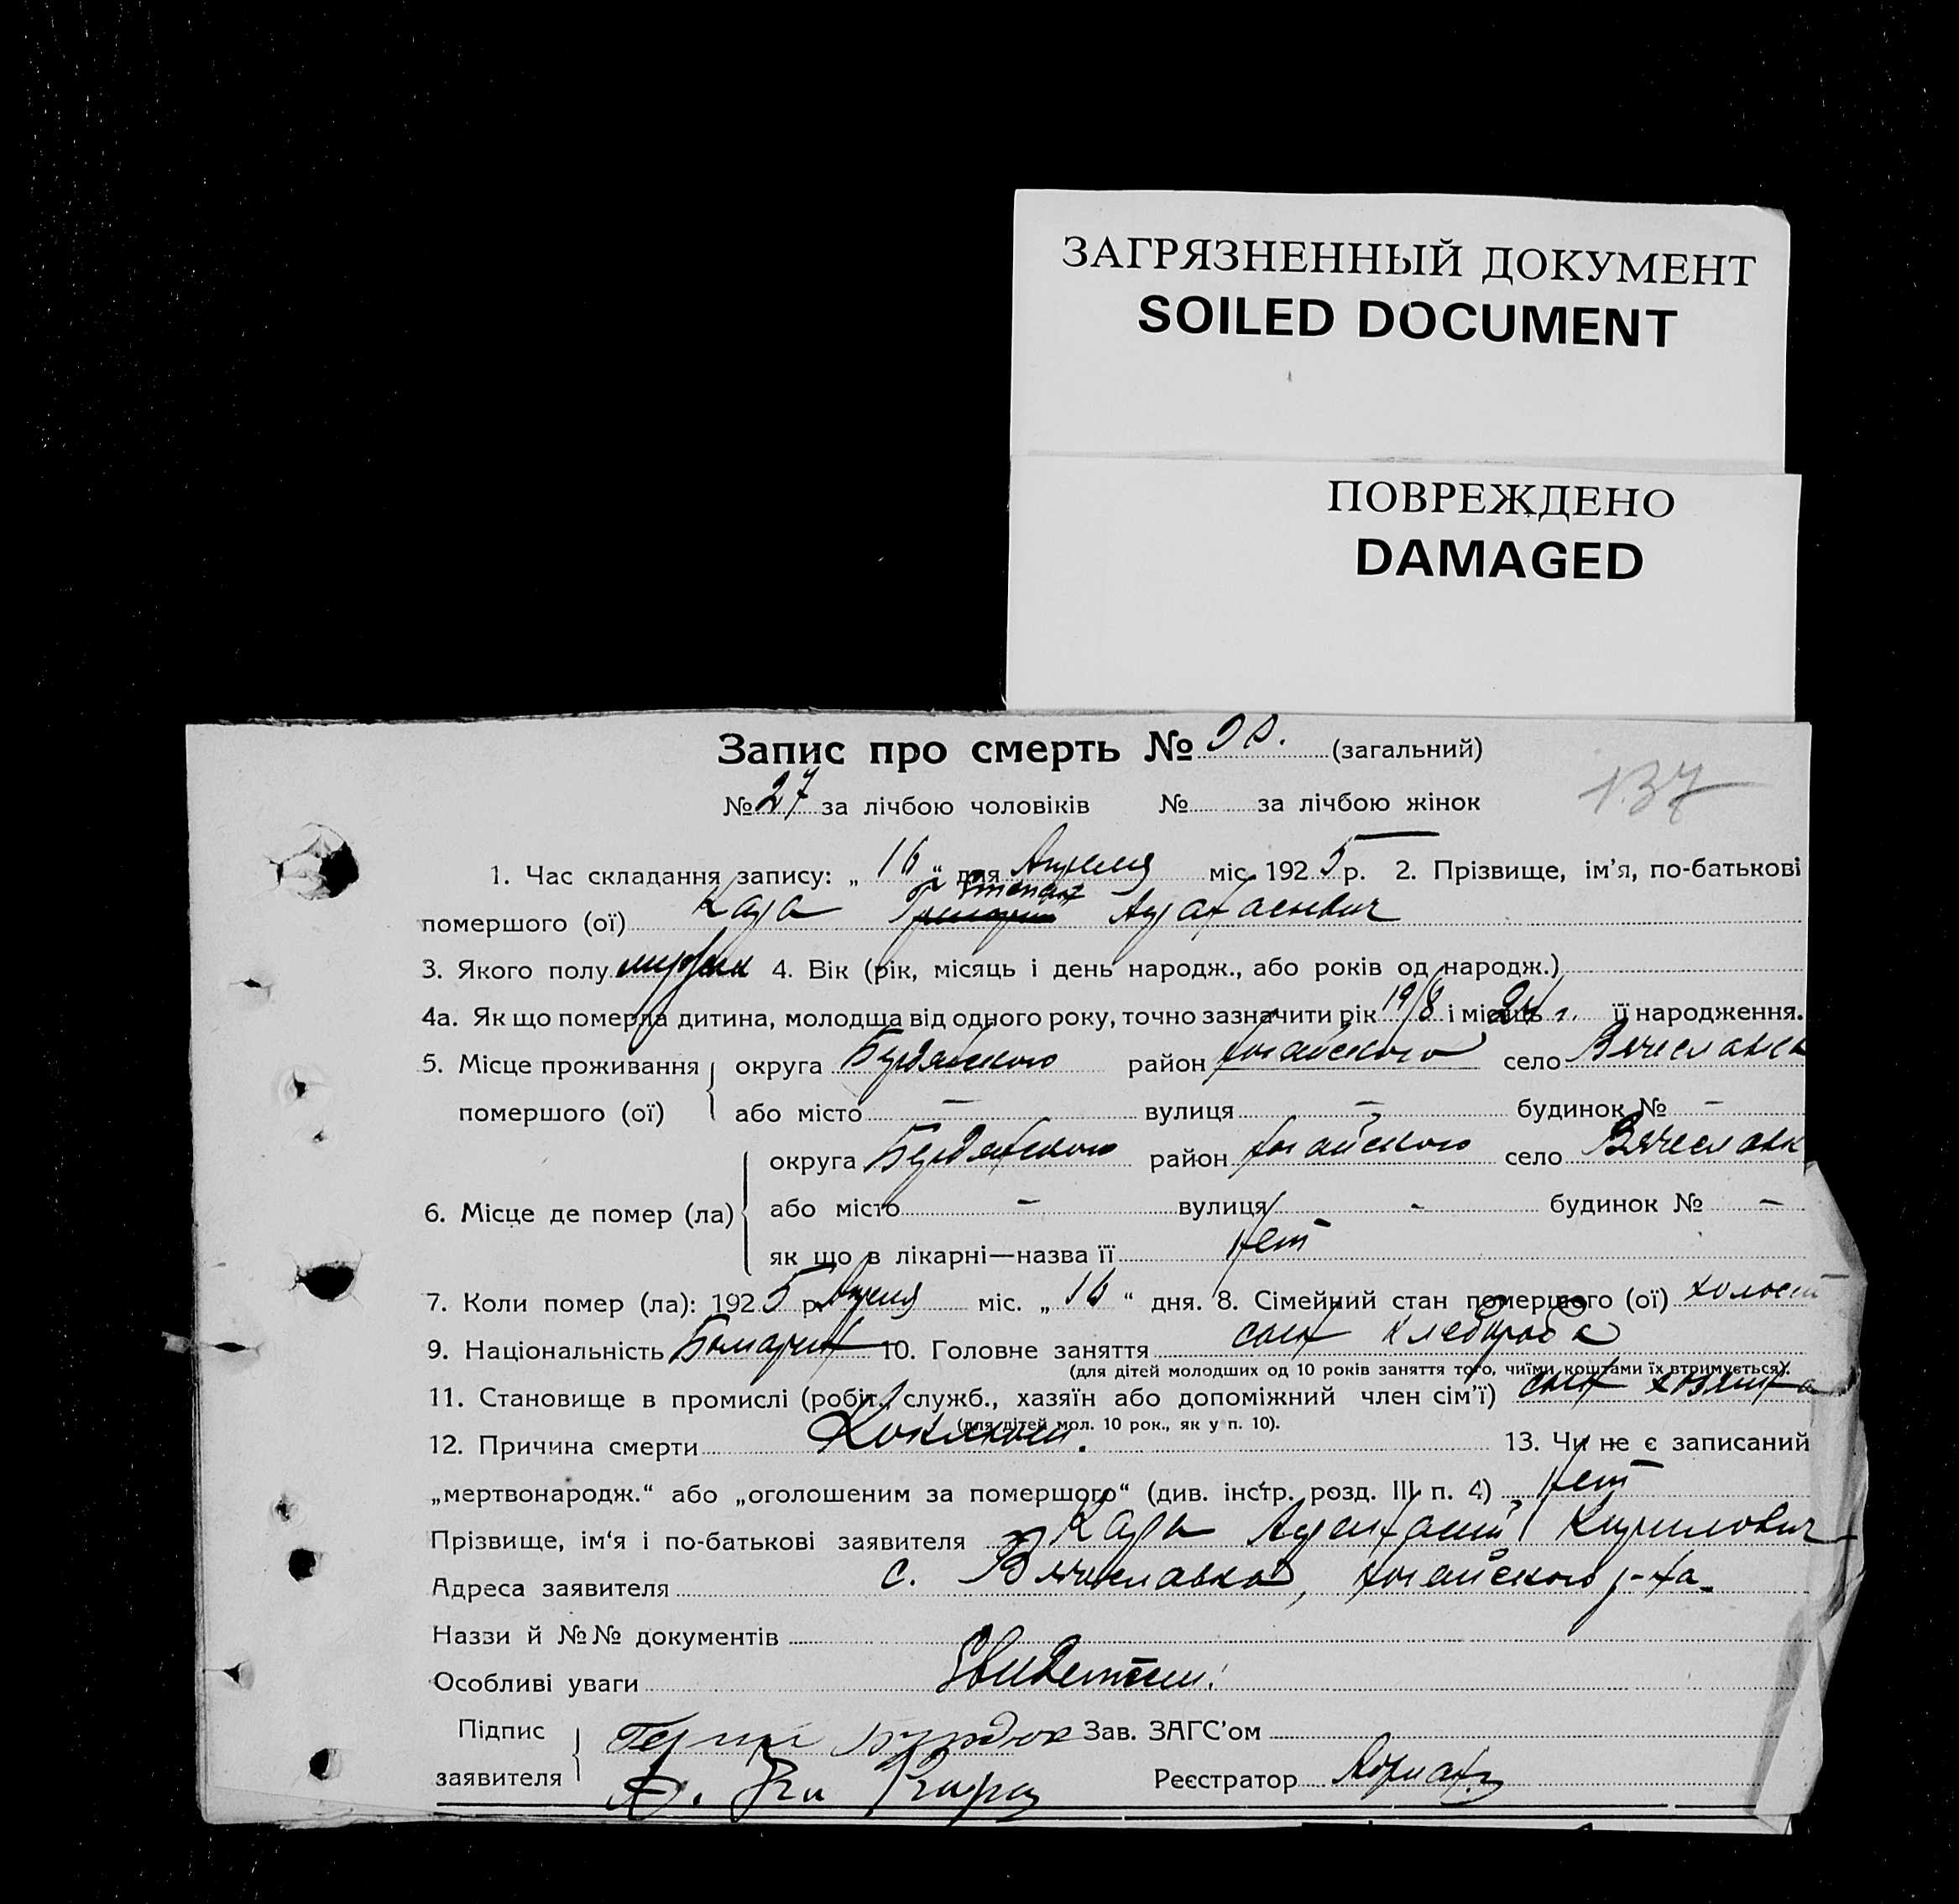 ЗАГРЯЗНЕННЫЙ ДОКУМЕНТ
SOILED DOCUMENT
ПОВРЕЖДЕНО
DAMAGED
Запис про смерть № (загальний)
137
№ 27 за лічбою чоловіків № за лічбою жінок
1. Час складання запису: „ 16 “ дня Апреля міс. 1925 р. 2. Прізвище, ім’я, по-батькові
Степан
помершого (ої) Кара
3. Якого полу мужеск 4. Вік (рік, місяць і день народж., або років од народж.)
4а. Як що померла дитина, молодша від одного року, точно зазначити рік 19/8 і місяць її народження.
5. Місце проживання округа Бердянского район Ногайского село Вячеславка
помершого (ої) або місто – вулиця – будинок № –
округа Бердянского район Ногайского село Вячеславк
6. Місце де помер (ла) або місто – вулиця - будинок № –
як що в лікарні—назва її Нет
7. Коли помер (ла): 1925 р. Апреля міс. „ 16 “ дня. 8. Сімейний стан помершого (ої) холост
9. Національність Болгарин 10. Головне заняття сын хлебороба
(для дітей молодших од 10 років заняття того, чиїми коштами їх втримується).
11. Становище в промислі (робіт., служб., хазяїн або допоміжний член сім’ї) сын хозяина
(для дітей мол. 10 рок., як у п. 10).
12. Причина смерти 13. Чи не є записаний
„мертвонародж.“ або „оголошеним за помершого“ (див. інстр. розд. III п. 4) Нет
Прізвище, ім‘я і по-батькові заявителя Кара Кирилович
Адреса заявителя с. Вячеславка, Ногайского р-на.
Назви й №№ документів
Особливі уваги Свидетели:
Підпис Зав. ЗАГС’ом
заявителя Реєстратор